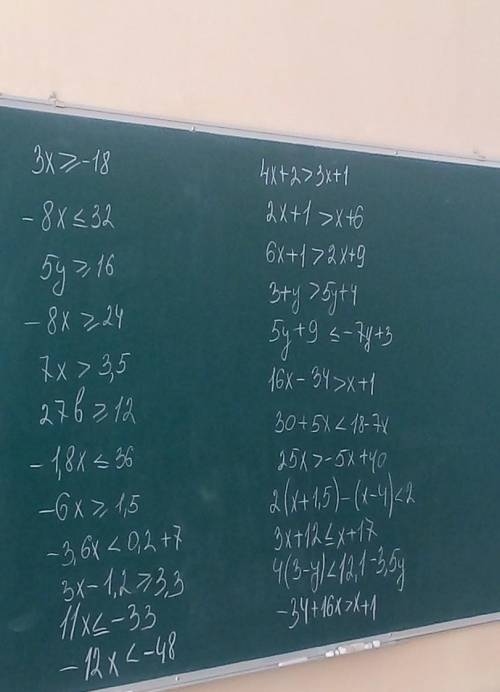 3x ≥ -18
- 8x ≤ 32
5y ≥ 16
- 8x ≥ 24
7x > 3,5
27b ≥ 12
- 1,8x ≤ 36
-6x ≥ 1,5
-3,6x < 0,2+7
3x - 1,2 ≥ 3,3
11x ≤ -33
- 12x < -48
4x+2 > 3x+1
2x+1 > x+6
6x+1 > 2x+9
3+y > 5y+4
5y+9 ≤ -7y+3
16x - 34 > x+1
30+5x < 18-7x
25x > -5x+40
2(x+1,5)-(x-4)<2
3x+12 ≤ x+17
4(3-y)<12,1-3,5y
-34+16x > x+1